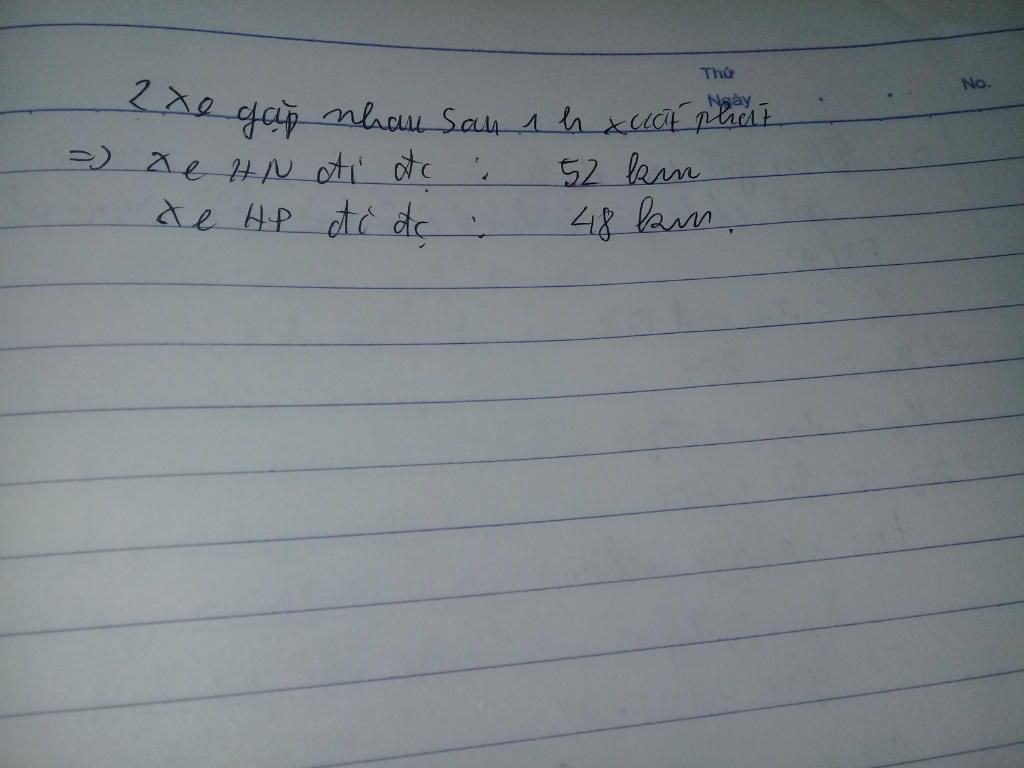 Thứ
Ngày
No.
2 xe gặp nhau sau 1h xuất phát
=> xe HN đi đc : 52 km
xe HP đi đc : 48 km.